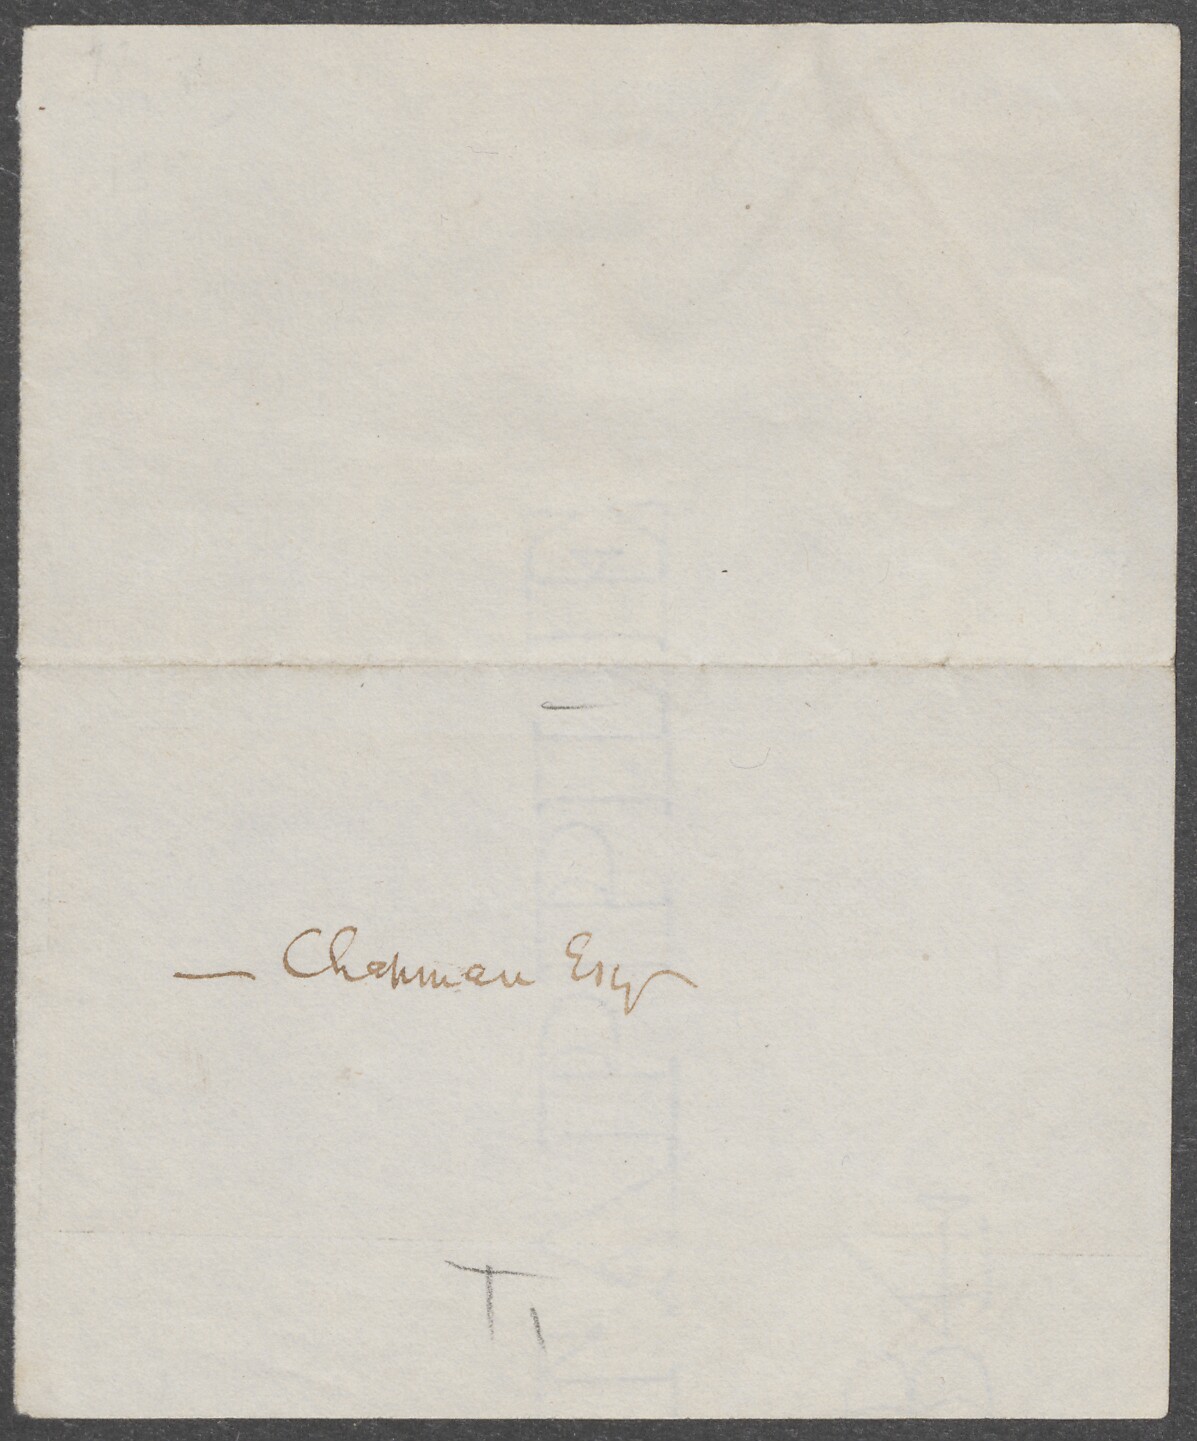 — Chapman Esqr
T1